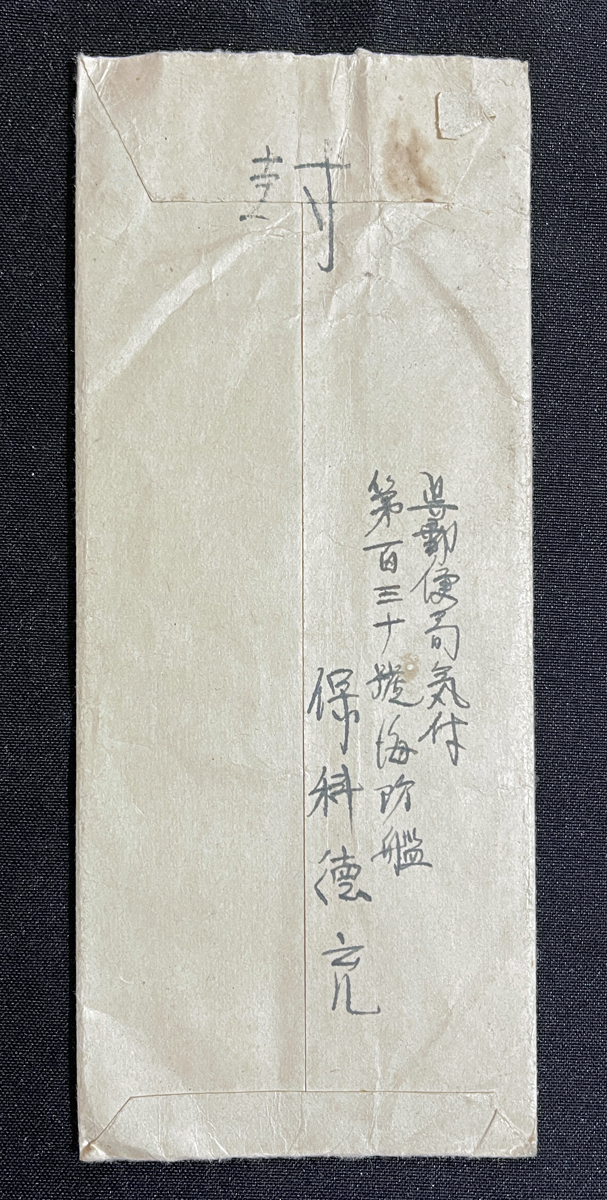 封
呉郵便局気付
第百三十號海防艦
保科徳充